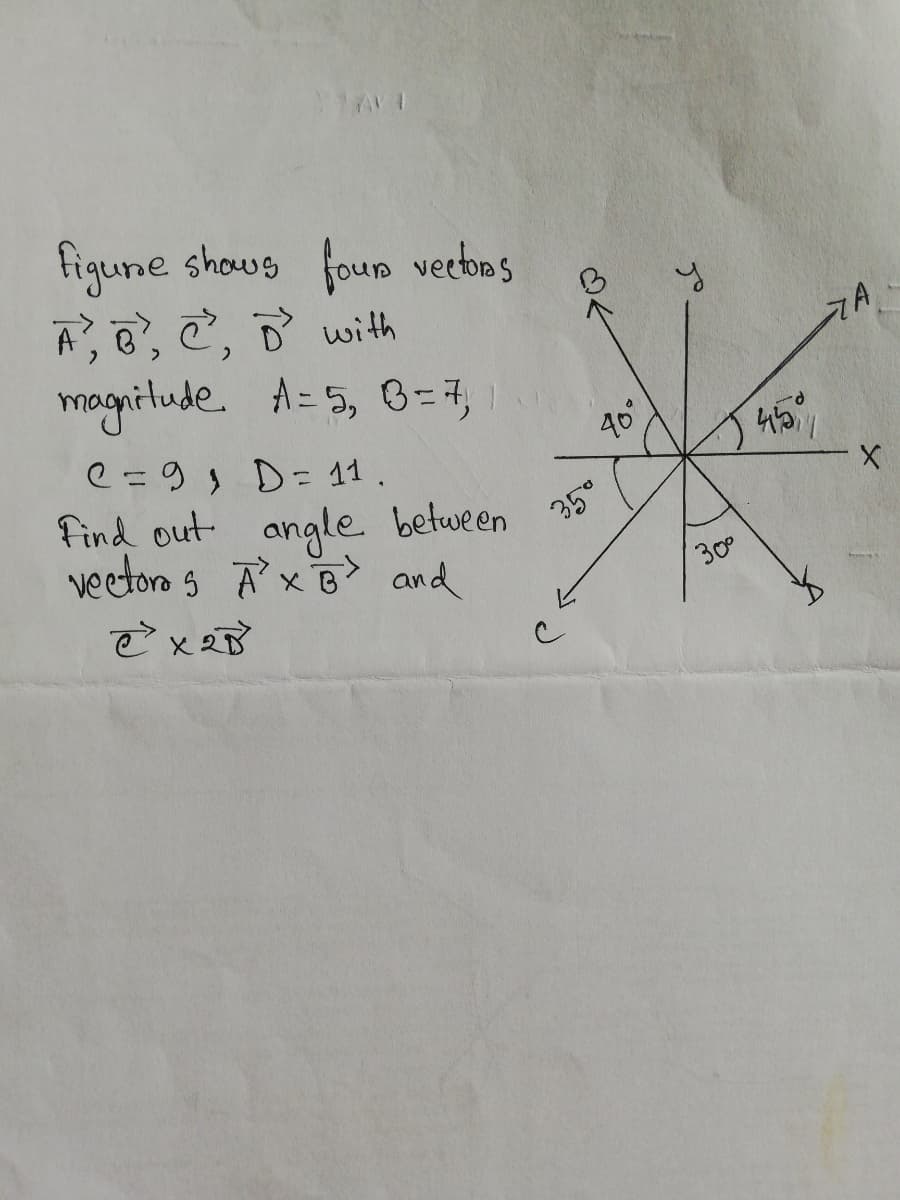 figure shows four vectors
A⃗, B⃗, C⃗, D⃗ with
magnitude A=5, B=7,
C = 9, D= 11.
Find out angle between
vectors A⃗ x B⃗ and
C⃗ x 2D⃗
B
y
A
40°
45°
X
35°
30°
C
D